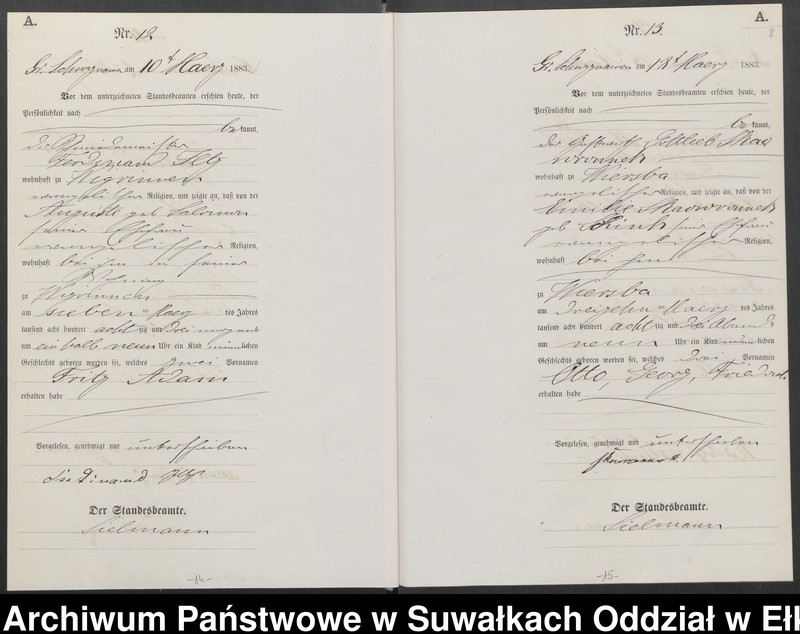 A.
Nr. 12
am 10t Maerz 1883.
Vor dem unterzeichneten Standesbeamten erschien heute, der
Persönlichkeit nach
be kannt,
der Schmiedemeister
Ferdinand
wohnhaft zu Wigrinnen
evangelischer Religion, und zeigte an, daß von der
Auguste geb. Salomon
seiner Ehefrau
evangelischer Religion,
wohnhaft bei ihm in seiner
Wohnung
zu Wigrinnen
am sieben ten Maerz des Jahres
tausend acht hundert acht zig und drei morgens
um ein halb neun Uhr ein Kind männlichen
Geschlechts geboren worden sei, welches zwei Vornamen
Fritz Adam
erhalten habe
Vorgelesen, genehmigt und unterschrieben
Ferdinand
Der Standesbeamte.
Sielmann
-14-
A.
8
Nr. 13.
am 18t Maerz 1883.
Vor dem unterzeichneten Standesbeamten erschien heute, der
Persönlichkeit nach
be kannt,
der Gastwirth Gottlieb
wohnhaft zu Wiersba
evangelischer Religion, und zeigte an, daß von der
Emilie
geb. seiner Ehefrau
evangelischer Religion,
wohnhaft bei ihm
zu Wiersba
am dreizehn ten Maerz des Jahres
tausend acht hundert acht zig und drei Abends
um neun Uhr ein Kind männlichen
Geschlechts geboren worden sei, welches drei Vornamen
Otto, Georg, Friedrich
erhalten habe
Vorgelesen, genehmigt und unterschrieben
Der Standesbeamte.
Sielmann
-15-
Archiwum Państwowe w Suwałkach Oddział w Ełk